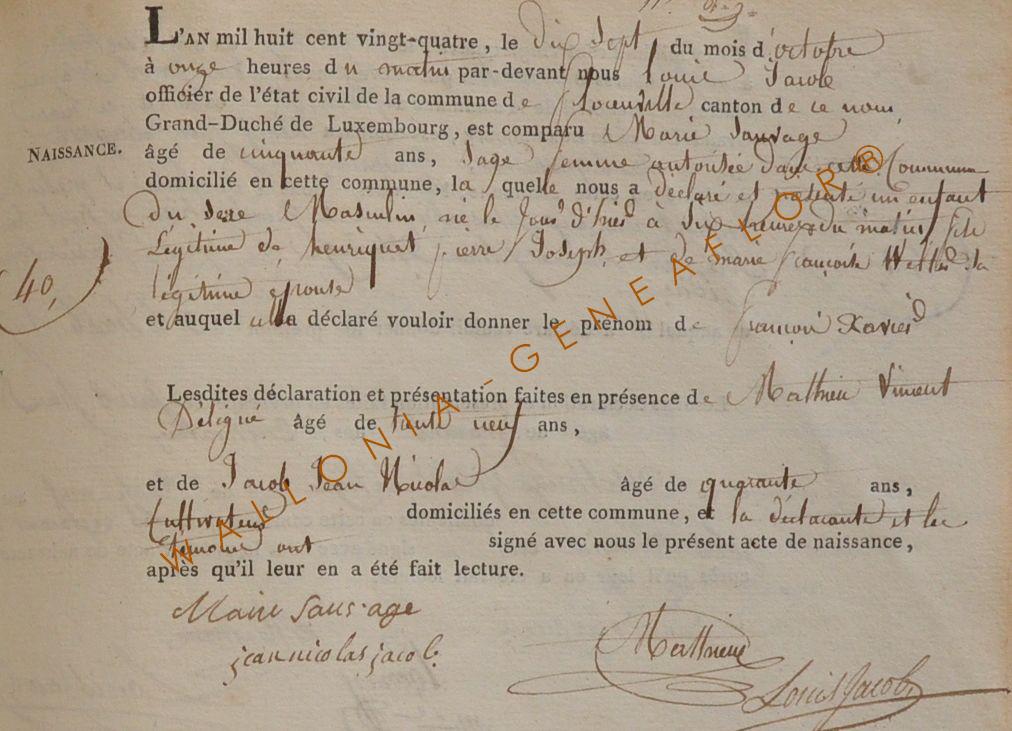 L'AN mil huit cent vingt-quatre, le dix Sept du mois d'octobre
à onze heures du matin par-devant nous Louis Jacob
officier de l'état civil de la commune de florenville canton de ce nom
Grand-Duché de Luxembourg, est comparu Marie Sauvage
NAISSANCE.
âgé de cinquante ans, Sage femme autorisée dans cette Commune
domicilié en cette commune, la quelle nous a déclaré et présenté un enfant
du sexe Masculin né le Jour d'hier à Six heures du matin fils
Légitime de henriquet pierre Joseph et de marie françoise sa
40,
légitime épouse
et auquel elle a déclaré vouloir donner le prénom de françois Xavier
Lesdites déclaration et présentation faites en présence de Mathieu Vincent
Délégué âgé de trente neuf ans,
et de Jacob Jean Nicolas âgé de quarante ans,
Cultivateur domiciliés en cette commune, et la déclarante et les
témoins ont signé avec nous le présent acte de naissance,
après qu'il leur en a été fait lecture.
Marie Sauvage
jean nicolas jacob
Mathieu
Louis Jacob
WALLONIA-GENEAFLOR®